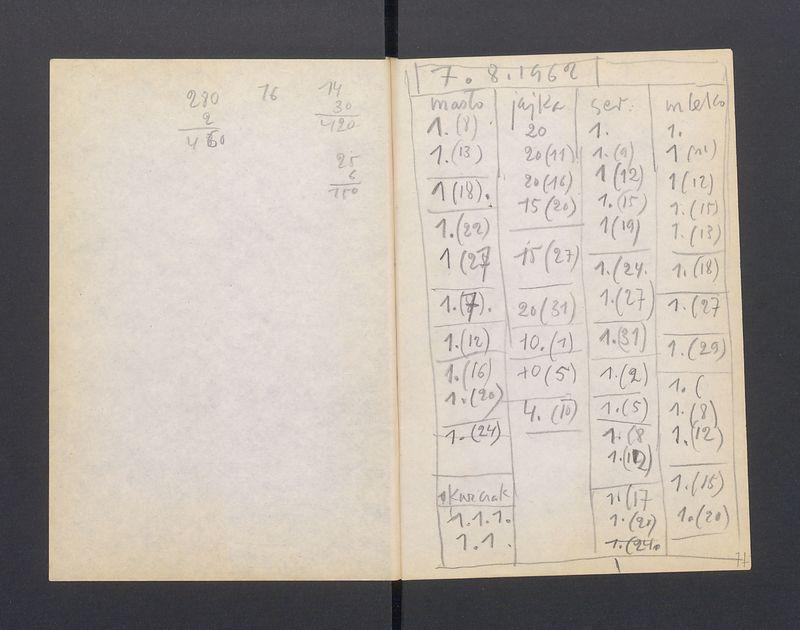 280 16 14
2 30
460 420
25
6
150
7. 8. 1962
masło jajka ser. mleko
1. (8) 20 1. 1.
1. (13) 20 (11) 1. (9) 1 (11)
1 (18). 20 (16) 1 (12) 1 (12)
15 (20) 1. (15) 1. (15)
1. (22) 1 (19) 1. (13)
1 (27) 15 (27) 1. (24. 1. (18)
1. (7). 20 (31) 1. (27) 1. (27
1. (12) 10. (1) 1. (31) 1. (29)
1. (16) 10 (5) 1. (2) 1. (
1. (20) 4. (10) 1. (5) 1. (8)
1. (24) 1. (8 1. (12)
1. (12)
1. (15)
1. (17
1.1.1. 1. (20) 1. (20)
1.1. 1. (24.